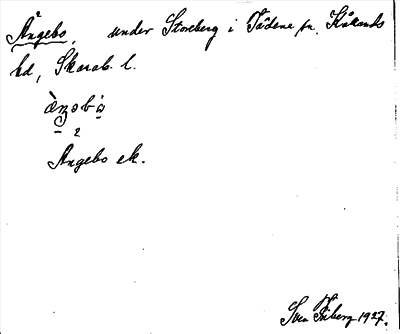 Ångebo, under Storeberg i Tådene sn. Kållands
hd, Skarab. l.
Angebo ek.
Sven Friberg 1927.